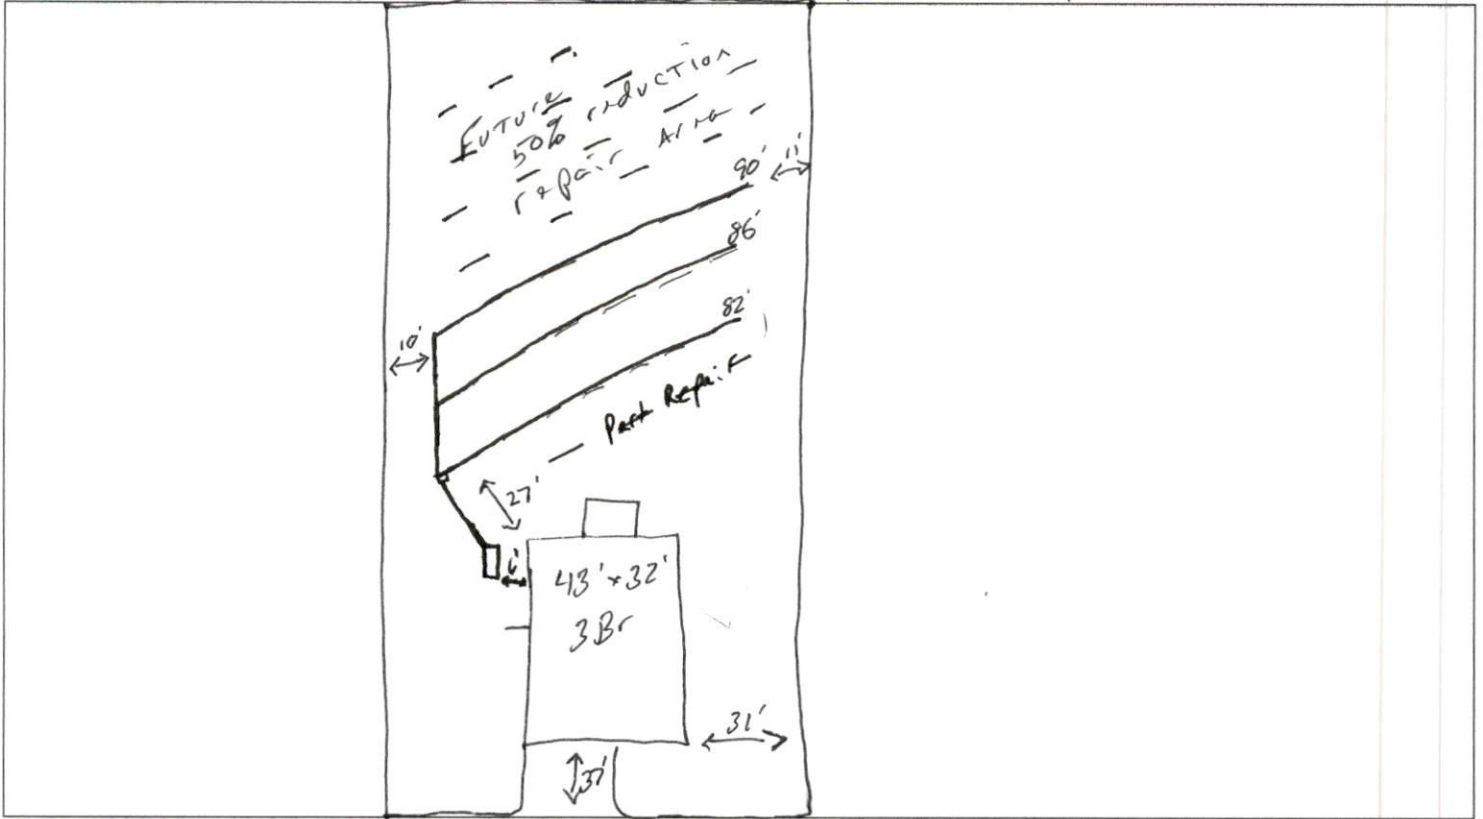 Future
50% reduction
repair Area
90'
11'
86'
82'
10'
Part Repair
27'
43' x 32'
3 Br
31'
37'